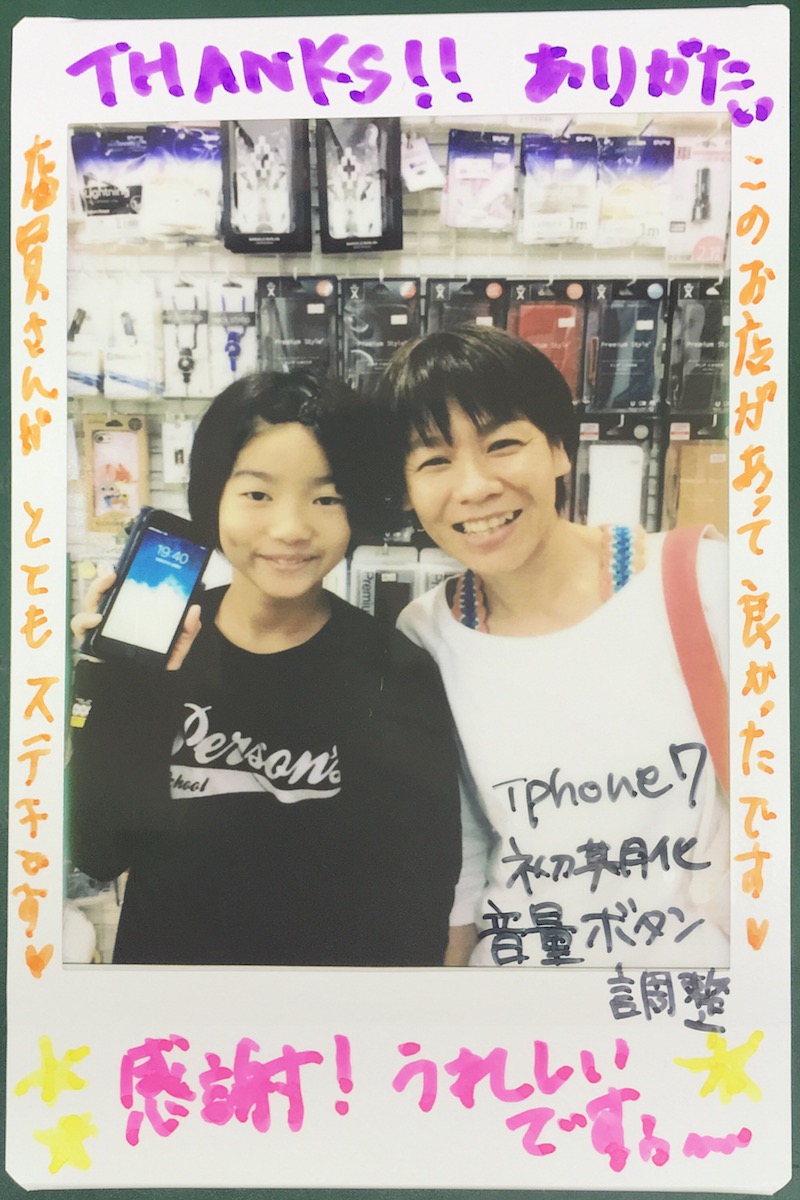 THANKS!! ありがたい
このお店があって良かったです♥
店員さんが とても ステキです♥
Lightning
1m
1m
Premium Style
Premium Style
Premium Style
Premium Style
19:40
Person's
School
Iphone7
初期化
音量ボタン
調整
感謝す! うれしい
ですぅ〜